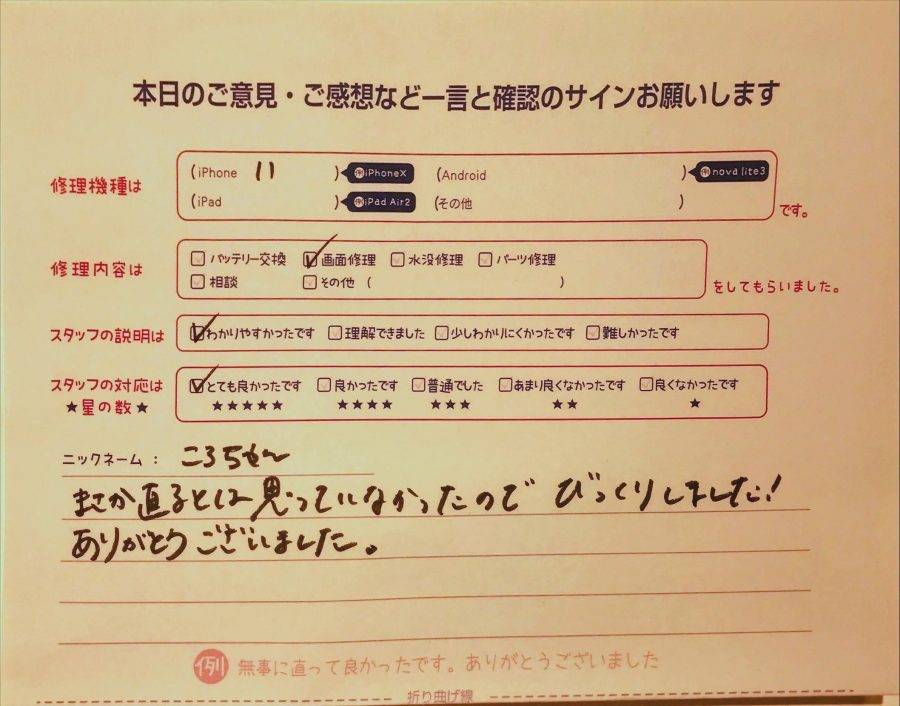 本日のご意見・ご感想など一言と確認のサインお願いします
修理機種は (iPhone 11 ) 例iPhoneX (Android ) 例nova lite3
(iPad ) 例iPad Air2 (その他 ) です。
修理内容は バッテリー交換 画面修理 水没修理 パーツ修理
相談 その他 ( ) をしてもらいました。
スタッフの説明は わかりやすかったです 理解できました 少しわかりにくかったです 難しかったです
スタッフの対応は とても良かったです 良かったです 普通でした あまり良くなかったです 良くなかったです
★星の数★ ★★★★★ ★★★★ ★★★ ★★ ★
ニックネーム： ころちゃん
まさか直るとは思っていなかったので びっくりしました!
ありがとうございました。
例 無事に直って良かったです。ありがとうございました
折り曲げ線